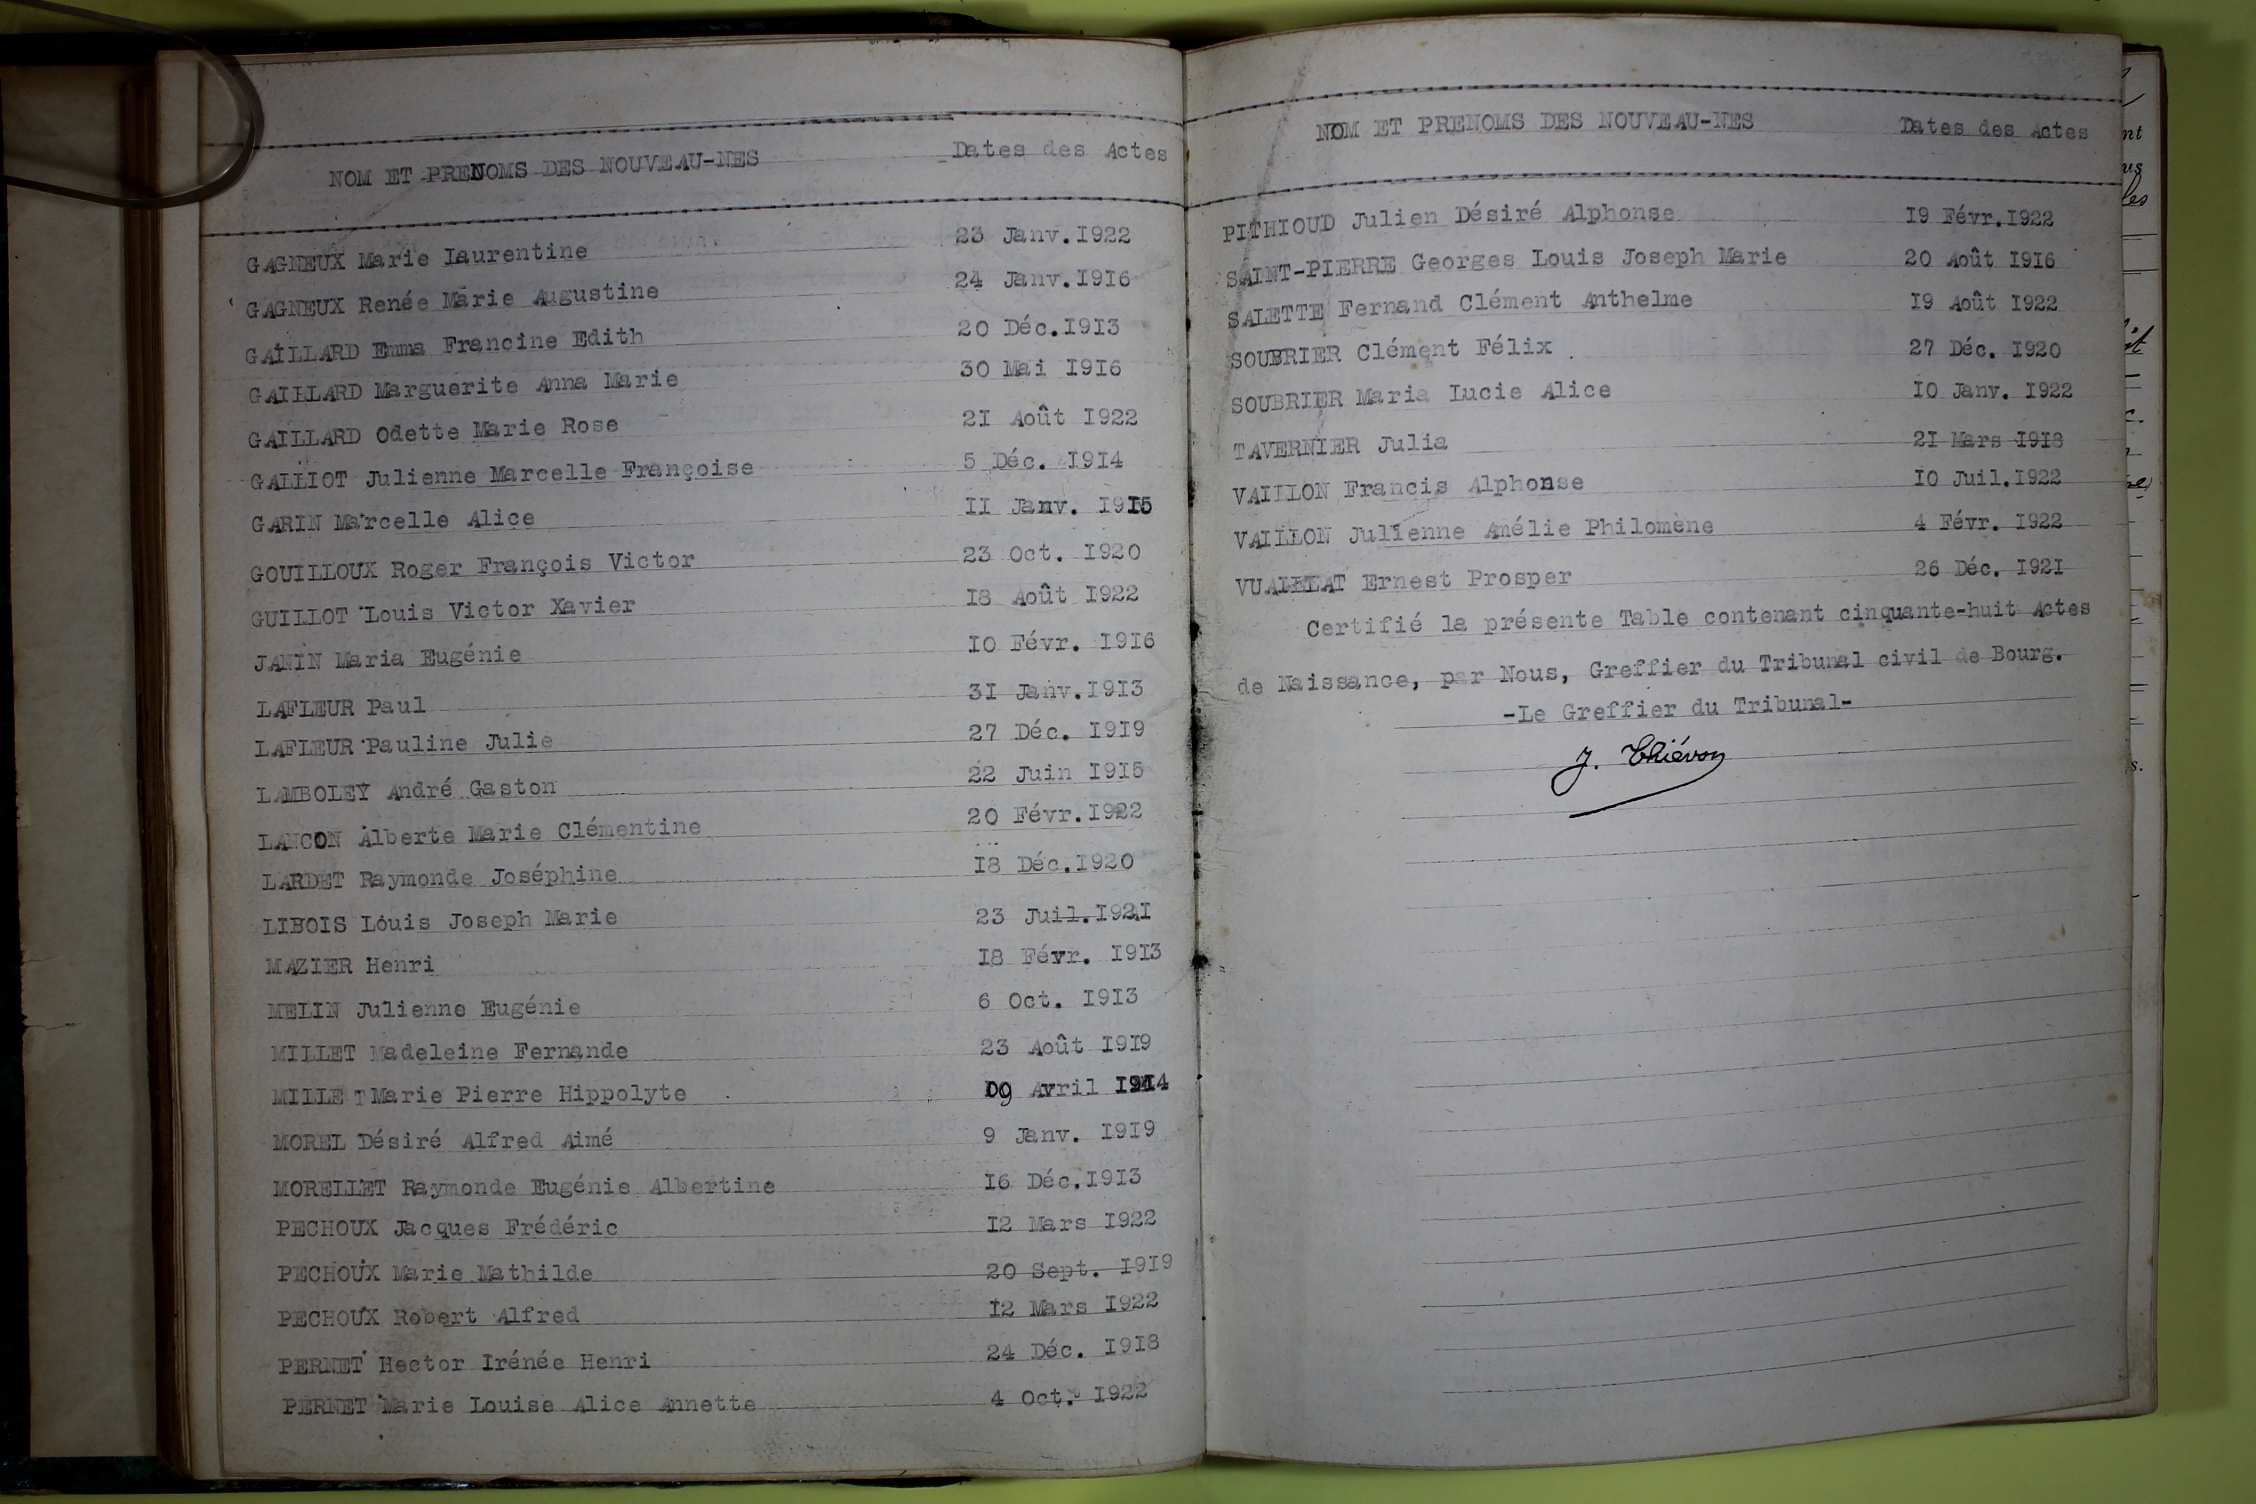 NOM ET PRENOMS DES NOUVEAU-NES Dates des Actes
GAGNEUX Marie Laurentine 23 Janv.1922
GAGNEUX Renée Marie Augustine 24 Janv.1916
GAILLARD Emma Francine Edith 20 Déc.1913
GAILLARD Marguerite Anna Marie 30 Mai 1916
GAILLARD Odette Marie Rose 21 Août 1922
GALLIOT Julienne Marcelle Françoise 5 Déc. 1914
GARIN Marcelle Alice 11 Janv. 1915
GOUILLOUX Roger François Victor 23 Oct. 1920
GUILLOT Louis Victor Xavier 18 Août 1922
JANIN Maria Eugénie 10 Févr. 1916
LAFLEUR Paul 31 Janv.1913
LAFLEUR Pauline Julie 27 Déc. 1919
LAMBOLEY André Gaston 22 Juin 1915
LANCON Alberte Marie Clémentine 20 Févr.1922
LARDET Raymonde Joséphine 18 Déc.1920
LIBOIS Louis Joseph Marie 23 Juil.1921
MAZIER Henri 18 Févr. 1913
MELIN Julienne Eugénie 6 Oct. 1913
MILLET Madeleine Fernande 23 Août 1919
MILLET Marie Pierre Hippolyte Avril 1914
MOREL Désiré Alfred Aimé 9 Janv. 1919
MORELLET Raymonde Eugénie Albertine 16 Déc.1913
PECHOUX Jacques Frédéric 12 Mars 1922
PECHOUX Marie Mathilde 20 Sept. 1919
PECHOUX Robert Alfred 12 Mars 1922
PERNET Hector Irénée Henri 24 Déc. 1918
PERNET Marie Louise Alice Annette 4 Oct. 1922
NOM ET PRENOMS DES NOUVEAU-NES Dates des Actes
PITHIOUD Julien Désiré Alphonse 19 Févr.1922
SAINT-PIERRE Georges Louis Joseph Marie 20 Août 1916
SALETTE Fernand Clément Anthelme 19 Août 1922
SOUBRIER Clément Félix 27 Déc. 1920
SOUBRIER Maria Lucie Alice 10 Janv. 1922
TAVERNIER Julia 21 Mars 1918
VAILLON Francis Alphonse 10 Juil.1922
VAILLON Julienne Amélie Philomène 4 Févr. 1922
Ernest Prosper 26 Déc. 1921
Certifié la présente Table contenant cinquante-huit Actes
de Naissance, par Nous, Greffier du Tribunal civil de Bourg.
-Le Greffier du Tribunal-
J. Thiévon